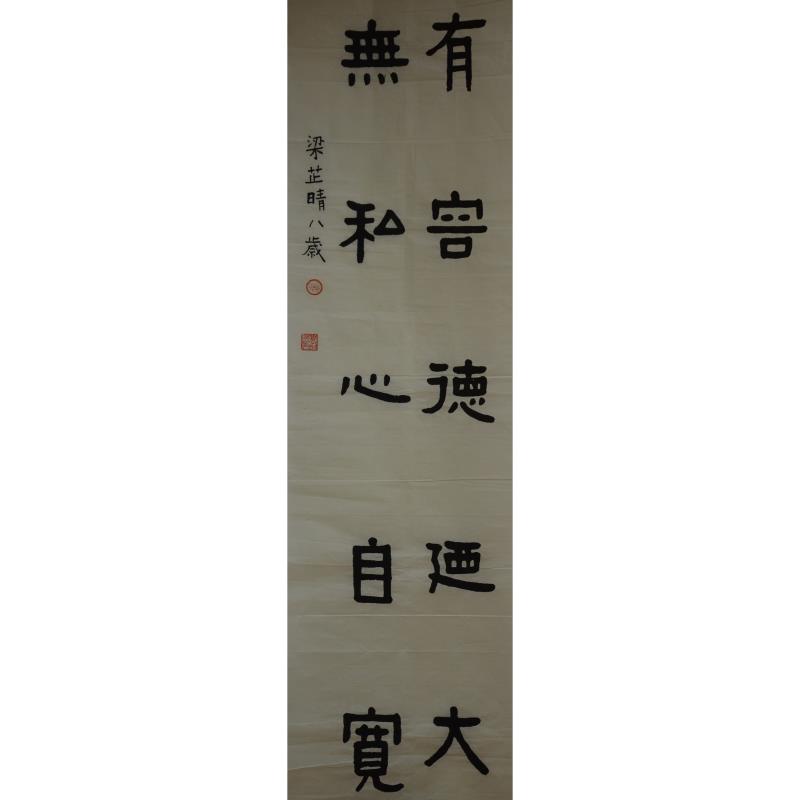 有容德廼大
無私心自寬
梁芷晴八歲